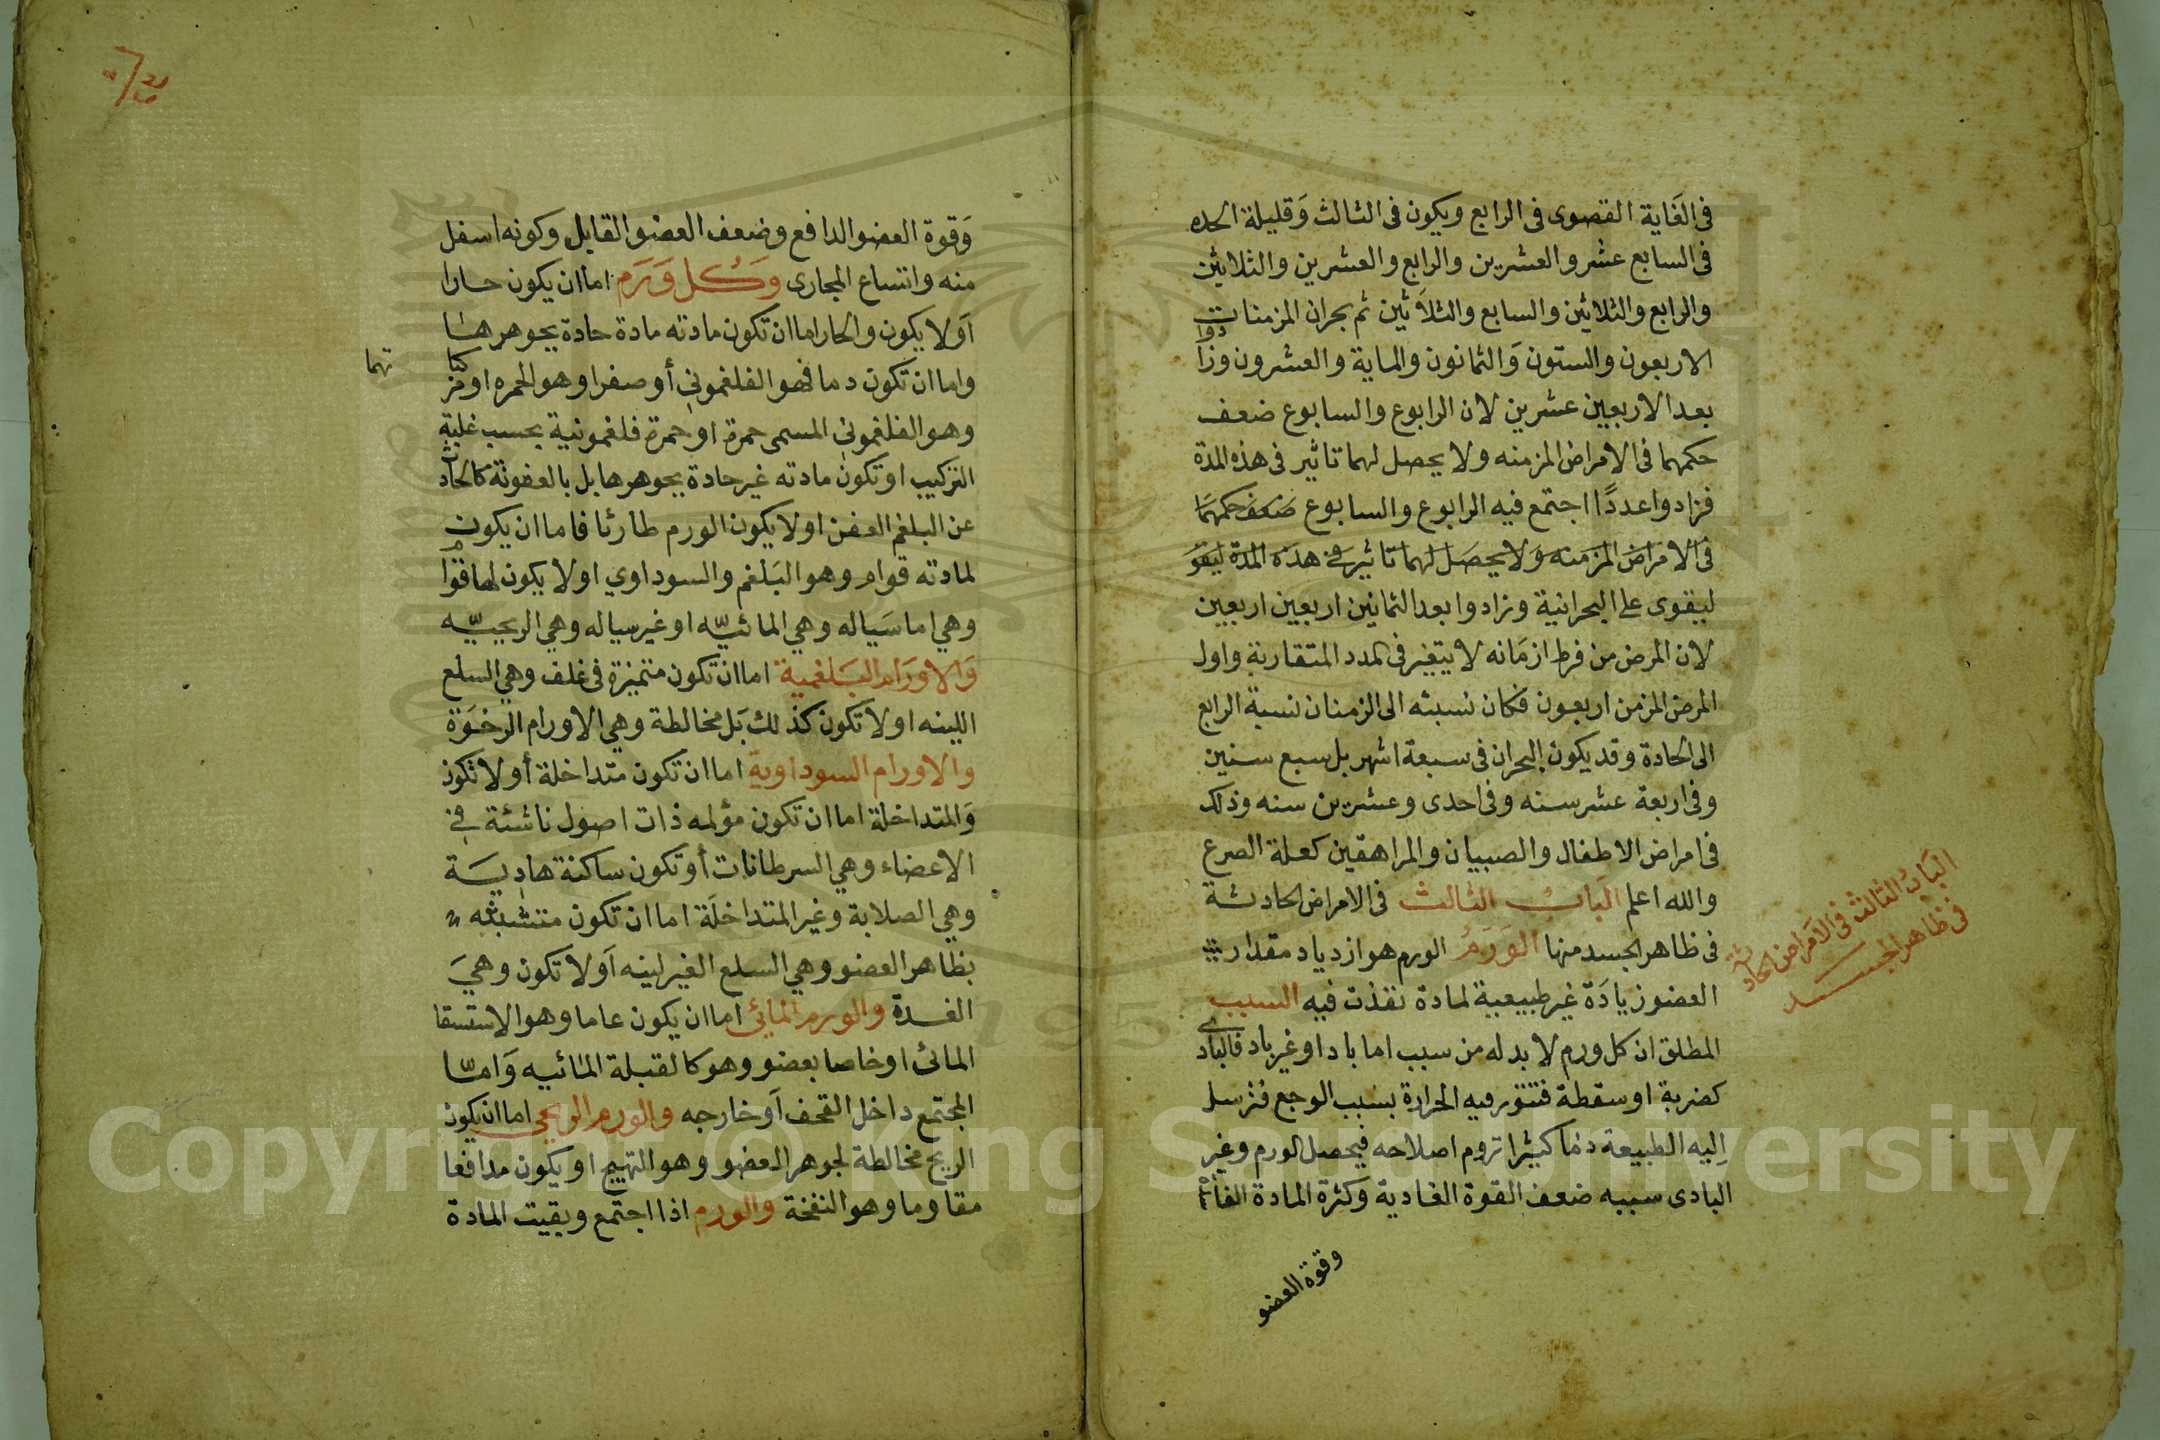 في الغاية القصوى في الرابع ويكون في الثالث وقليلة الحده
في السابع عشر والعشرين والرابع والعشرين والثلاثين
والرابع والثلاثين والسابع والثلاثين ثم بحران المزمنات
الاربعون والستون والثمانون والماية والعشرون وزادوا
بعد الاربعين عشرين لان الرابوع والسابوع ضعف
حكمهما في الامراض المزمنه ولا يحصل لهما تاثير في هذه المدة
فزادوا عددًا اجتمع فيه الرابوع والسابوع ضعف حكمهما
في الامراض المزمنه ولا يحصل لهما تاثير في هذه المدة ليقو
ليقوى على البحرانية وزادوا بعد الثمانين اربعين اربعين
لان المرض من فرط ازمانه لا يتغير في المدد المتقاربة واول
المرض المزمن اربعون فكان نسبته الى الزمنات نسبة الرابع
الى الحادة وقد يكون البحران في سبعة اشهر بل سبع سنين
وفي اربعة عشر سنه وفي احدى وعشرين سنه وذلك
في امراض الاطفال والصبيان والمراهقين كعلة الصرع
والله اعلم الباب الثالث في الامراض الحادثة
في ظاهر الجسد منها الورم الورم هو ازدياد مقدار
العضو زيادة غير طبيعية لمادة نفذت فيه السبب
المطلق ان كل ورم لا بد له من سبب اما باد او غير باد فالبادي
كضربة او سقطة فتثور فيه الحرارة بسبب الوجع فترسل
اليه الطبيعة دما كثيرا تروم اصلاحه فيحصل الورم وغير
البادى سببه ضعف القوة الغادية وكثرة المادة
وقوة العضو
الباب الثالث في الامراض الحادثة
في ظاهر الجسد
وقوة العضو الدافع وضعف العضو القابل وكونه اسفل
منه واتساع المجارى وكل ورم اما ان يكون حارا
اولا يكون والحار اما ان تكون مادته مادة حادة بجوهرها
واما ان تكون دما فهو الفلغموني أو صفرا وهو الحمره او مركبا
تهما
وهو الفلغموني المسمى حمرة او حمرة فلغمونية بحسب غلبة
التركيب او تكون مادته غير حادة بجوهرها بل بالعفونة كالحادث
عن البلغم العفن او لا يكون الورم طارئا فاما ان يكون
لمادته قوام وهو البلغم والسوداوي اولا يكون لها قوام
وهي اما سياله وهي المائيه او غير سياله وهي الريحيه
والاورام البلغمية اما ان تكون متميزة في غلف وهي السلع
اللينه او لا تكون كذلك بل مخالطة وهي الاورام الرخوة
والاورام السوداوية اما ان تكون متداخلة أو لا تكون
والمتداخلة اما ان تكون مؤلمه ذات اصول ناشئة في
الاعضاء وهي السرطانات أو تكون ساكنة هادية
وهي الصلابة وغير المتداخلة اما ان تكون متشبثه
بظاهر العضو وهي السلع الغير لينه اولا تكون وهي
الغدة والورم المائي اما ان يكون عاما وهو الاستسقا
المائى او خاصا بعضو وهو كالقيلة المائيه واما
المجتمع داخل القحف او خارجه والورم الريحي اما ان يكون
الريح مخالطة لجوهر العضو وهو التهيج او يكون مدافعا
مقاوما وهو النفخة والورم اذا اجتمع وبقيت المادة
Copyright © King S University